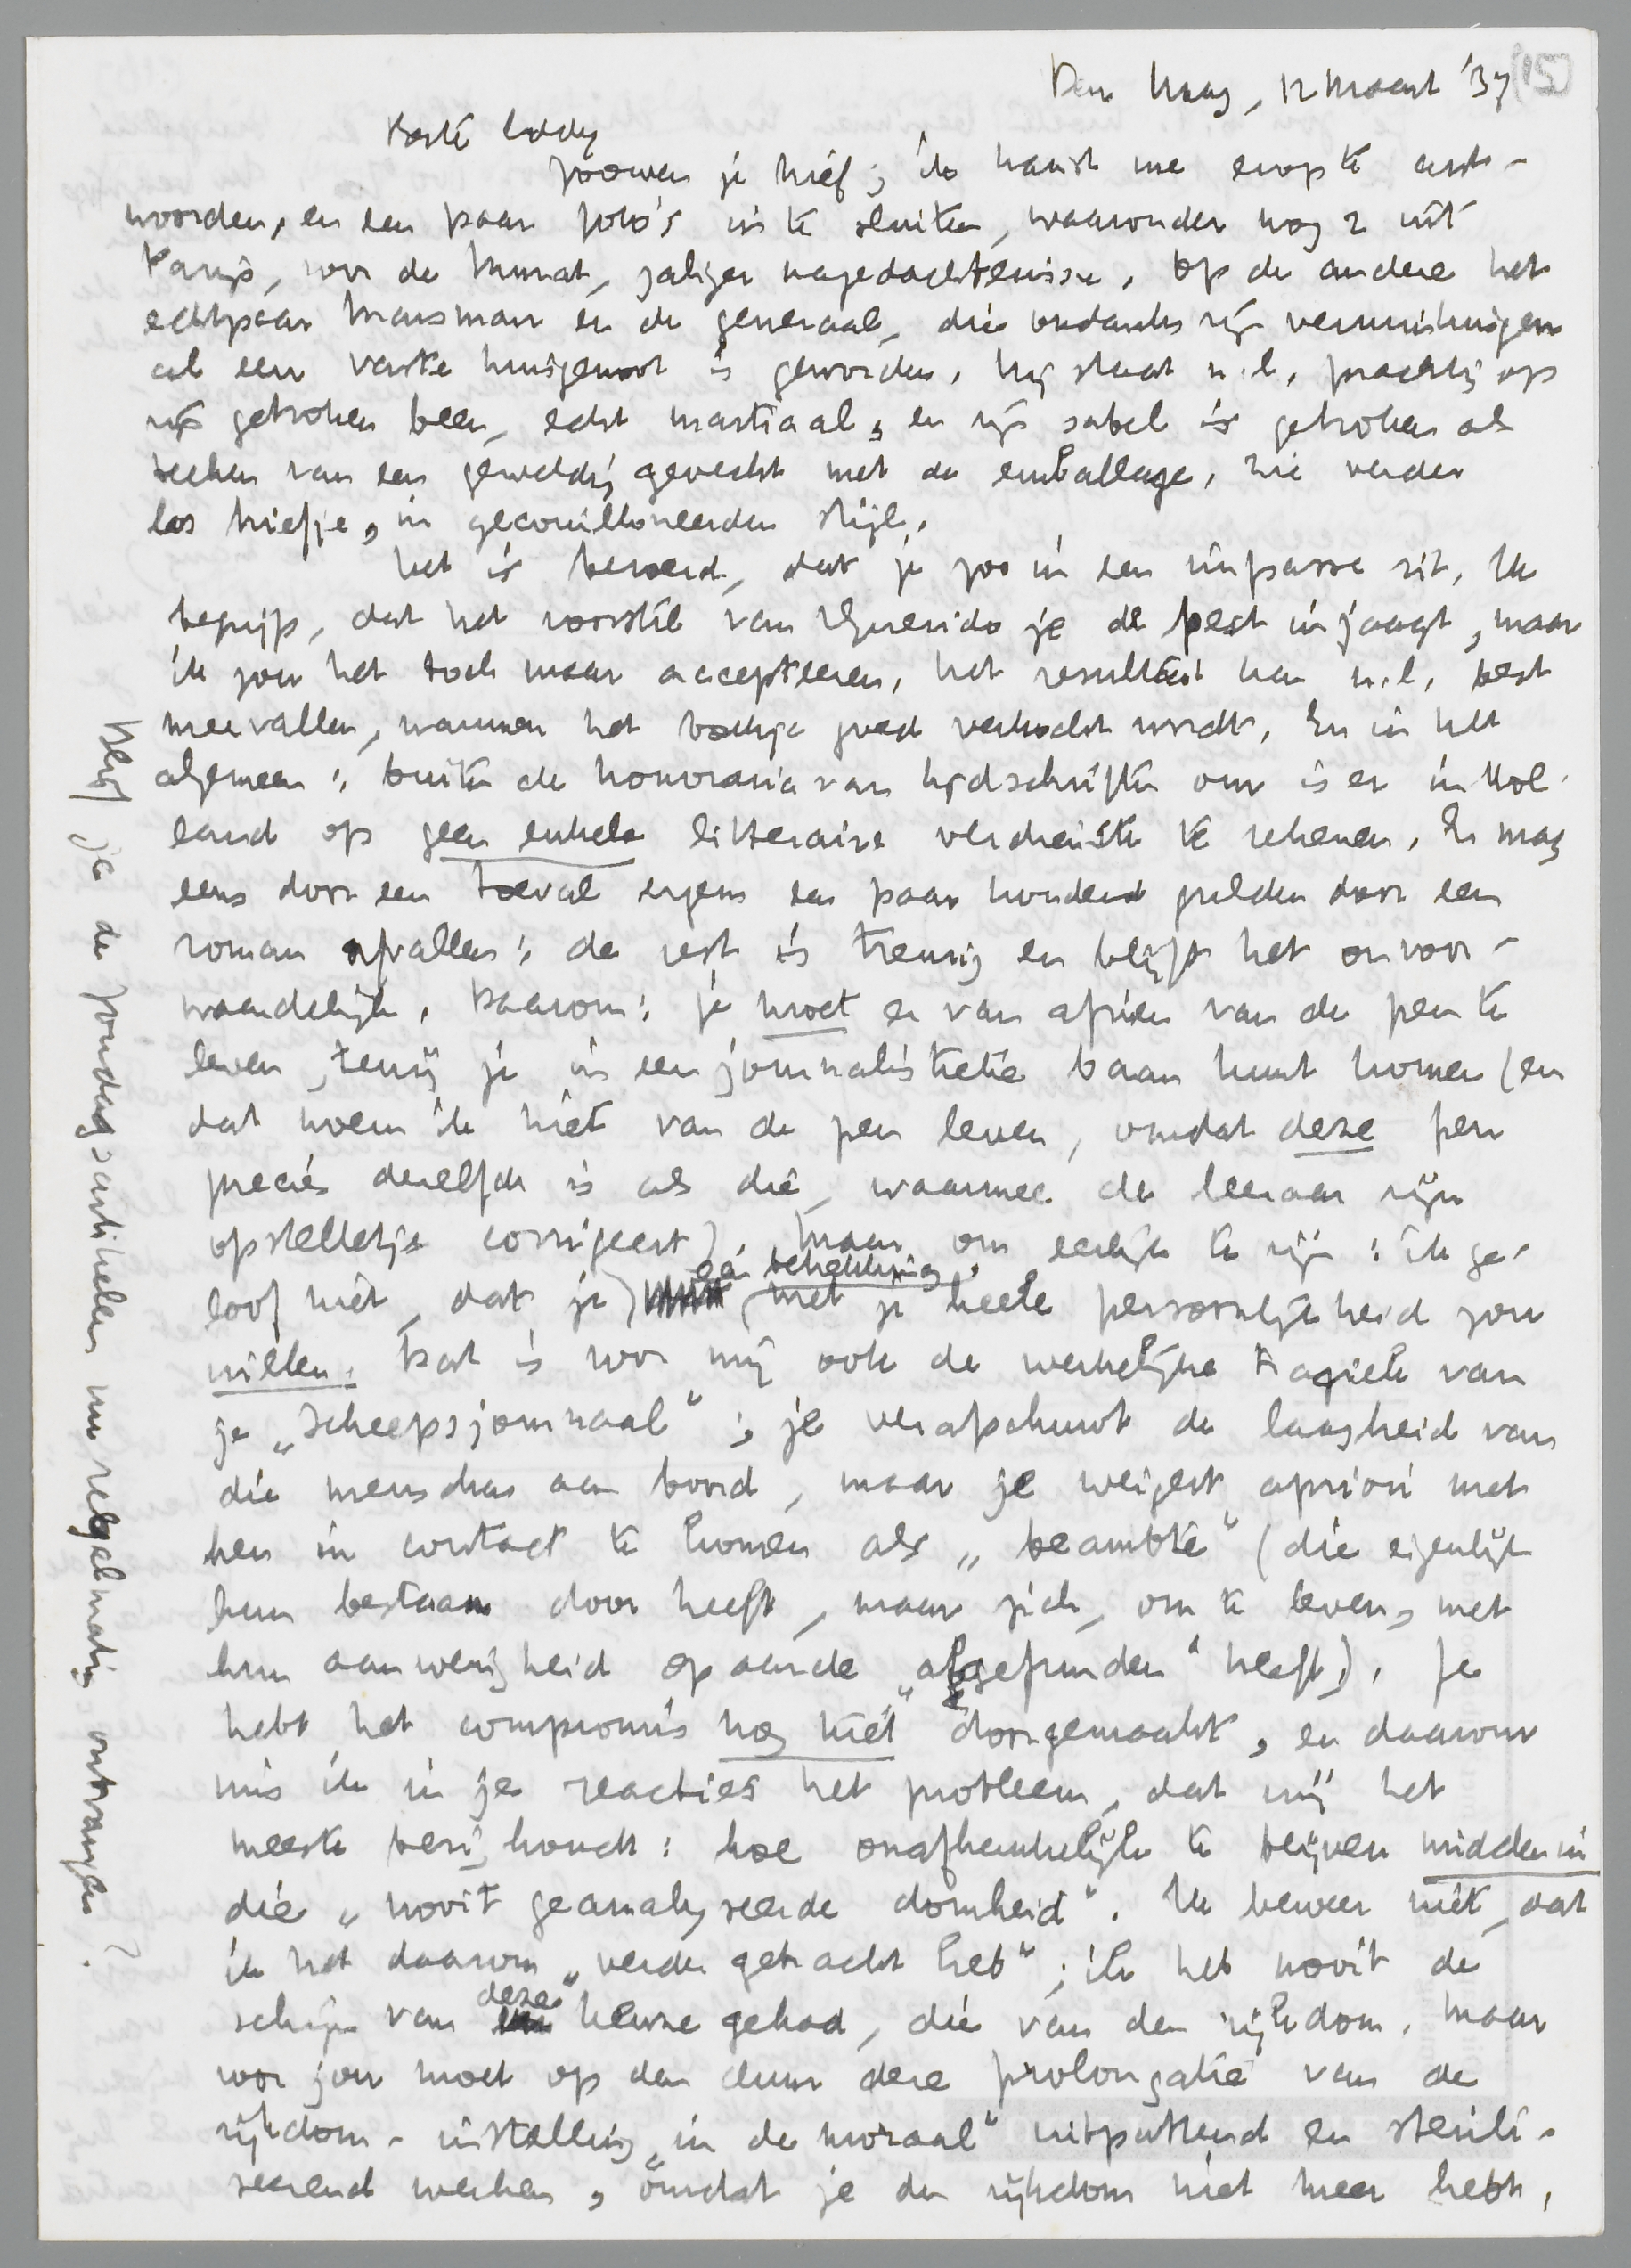 Den Haag, 12 Maart '37
Beste Eddy
Zooeven je brief; ik haast me erop te ant-
woorden, en een paar foto's in te sluiten, waaronder nog 2 uit
Parijs, voor de Murat, zaliger nagedachtenisse. Op de andere het
echtpaar Marsman en de generaal, die ondanks zijn verminkingen
al een vaste huisgenoot is geworden. Hij staat n.l. prachtig op
zijn gebroken been, echt martiaal, en zijn sabel is gebroken als
teeken van een geweldig gevecht met de emballage. Zie verder
los briefje, in gecouilloneerden stijl.
Het is beroerd, dat je zoo in een impasse zit. Ik
begrijp, dat het voorstel van Querido je de pest in jaagt, maar
ik zou het toch maar accepteeren. Het resultaat kan n.l. best
meevallen, wanneer het boekje goed verkocht wordt. En in het
algemeen: buiten de honoraria van tijdschriften om is er in Hol-
land op geen enkele litteraire verdienste te rekenen. Er mag
eens door een toeval ergens een paar honderd gulden door een
roman afvallen: de rest is treurig en blijft het onvoor-
waardelijk. Daarom: je moet er van afzien van de pen te
leven, tenzij je in een journalistieke baan kunt komen (en
dat noem ik niet van de pen leven, omdat deze pen
precies dezelfde is als die, waarmee de leeraar zijn
opstelletje corrigeert). Maar om eerlijk te zijn: ik ge-
loof niet, dat je die betrekking met je heele persoonlijkheid zou
willen. Dat is voor mij ook de werkelijke tragiek van
je „Scheepsjournaal"; je verafschuwt de laagheid van
die menschen aan boord, maar je weigert apriori met
hen in contact te komen als „beambte" (die eigenlijk
hun bestaan door heeft, maar zich, om te leven, met
hun aanwezigheid op aarde „abgefunden" heeft). Je
hebt het compromis „nog niet" doorgemaakt, en daarom
mis ik in je reacties het probleem, dat mij het
meeste bezig houdt: hoe onafhankelijk te blijven midden in
die „nooit geanalyseerde domheid". Ik beweer niet, dat
ik het daarom „verder gebracht heb"; ik heb nooit de
schijn van deze keuze gehad, die van den rijkdom. Maar
voor jou moet op den duur deze prolongatie van de
rijkdom-instelling „in de moraal" uitputtend en sterili-
seerend werken, omdat je den rijkdom niet meer hebt.
Heb je de zondagsartikelen nu regelmatig ontvangen?